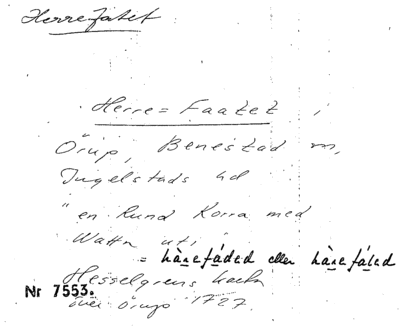 Herrefatet
Herre=Faatet i
Örup, Benestad sn,
Ingelstads hd
"en Rund Korra med
Wattn uti"
= hàrefáded eller hàrefáled
Hesselgrens karta
Nr 7553.
över Örup 1727.